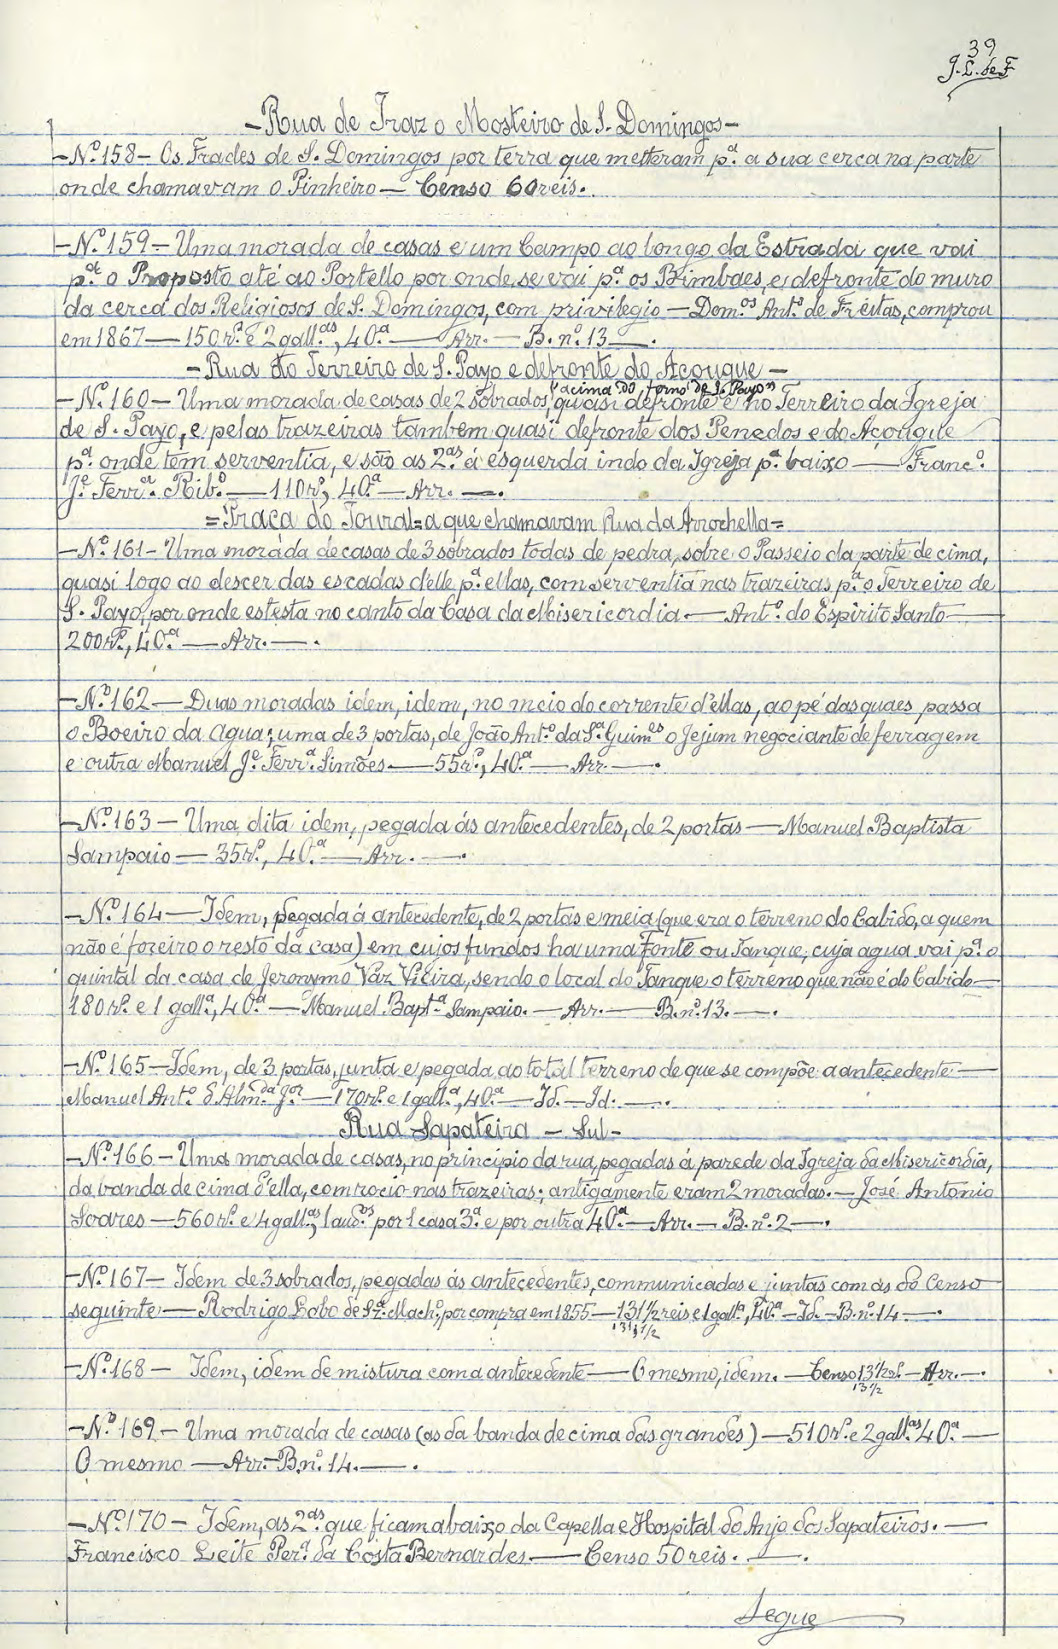 39
J. L. de F
- Rua de Traz o Mosteiro de S. Domingos -
- Nº 158 - Os Frades de S. Domingos por terra que metteram p.ª a sua cerca na parte
onde chamavam o Pinheiro — Censo 60 reis.
- Nº 159 - Uma morada de casas e um Campo ao longo da Estrada que vai
p.ª o Proposto até ao Portello por onde se vai p.ª os Bimbaes, e defronte do muro
da cerca dos Religiosos de S. Domingos, com privilegio — Dom.os Ant.º de Freitas, comprou
em 1867 — 150 r.s e 2 gall.as, 40.ª — Arr. — B. n.º 13 — .
- Rua do Terreiro de S. Payo e defronte do Açougue -
"acima do forno de S. Payo"
- Nº 160 - Uma morada de casas de 2 sobrados, quasi defronte e no Terreiro da Igreja
de S. Payo, e pelas trazeiras tambem quasi defronte dos Penedos e do Açougue
p.ª onde tem serventia, e são as 2.as á esquerda indo da Igreja p.ª baixo — Franc.º
J.e Ferr.ª Rib.º — 110 r.s, 40.ª — Arr. — .
= Praça do Toural = a que chamavam Rua da Arrochella =
- Nº 161 - Uma morada de casas de 3 sobrados todas de pedra, sobre o Passeio da parte de cima,
quasi logo ao descer das escadas d'elle p.ª ellas, com serventia nas trazeiras p.ª o Terreiro de
S. Payo, por onde estesta no canto da Casa da Misericordia. — Ant.º do Espirito Santo —
200 r.s, 40.ª — Arr. — .
- Nº 162 — Duas moradas idem, idem, no meio do corrente d'ellas, ao pé das quaes passa
o Boeiro da agua; uma de 3 portas, de João Ant.º da S.ª Guim.es o Jejum negociante de ferragem
e outra Manuel J.e Ferr.ª Simões — 55 r.s, 40.ª — Arr — .
- Nº 163 — Uma dita idem, pegada ás antecedentes, de 2 portas — Manuel Baptista
Sampaio — 35 r.s, 40.ª — Arr. — .
- Nº 164 — Idem, pegada á antecedente, de 2 portas e meia (que era o terreno do Cabido, a quem
não é foreiro o resto da casa) em cujos fundos ha uma Fonte ou Tanque, cuja agua vai p.ª o
quintal da casa de Jeronymo Vaz Vieira, sendo o local do Tanque o terreno que não é do Cabido —
180 r.s e 1 gall.ª, 40.ª — Manuel Bapt.ª Sampaio. — Arr. — B. n.º 13. — .
- Nº 165 — Idem, de 3 portas, junta e pegada ao total terreno de que se compõe a antecedente —
Manuel Ant.º d'Alm.da J.or — 170 r.s e 1 gall.ª, 40.ª — Id. — Id. — .
Rua Sapateira - Sul -
- Nº 166 - Uma morada de casas, no principio da rua, pegadas á parede da Igreja da Misericordia,
da banda de cima d'ella, com rocio nas trazeiras; antigamente eram 2 moradas. — José Antonio
Soares — 560 r.s e 4 gall.as, laud.os por 1 casa 3.ª e por outra 40.ª — Arr. — B. n.º 2 — .
- Nº 167 — Idem de 3 sobrados, pegadas ás antecedentes, communicadas e juntas com as do Censo
seguinte — Rodrigo Lobo de S.za Mach.º, por compra em 1855 — 131 1/2 reis e 1 gall.ª, 40.ª — Id. — B. n.º 14 — .
131, 1/2
- Nº 168 — Idem, idem de mistura com a antecedente — O mesmo, idem. — Censo 13 1/2 r.s — Arr. — .
13 1/2
- Nº 169 - Uma morada de casas (as da banda de cima das grandes) — 510 r.s e 2 gall.as 40.ª —
O mesmo — Arr. — B. n.º 14. — .
- Nº 170 — Idem, as 2.as que ficam abaixo da Capella e Hospital do Anjo dos Sapateiros. —
Francisco Leite Per.ª da Costa Bernardes — Censo 50 reis. — .
Segue